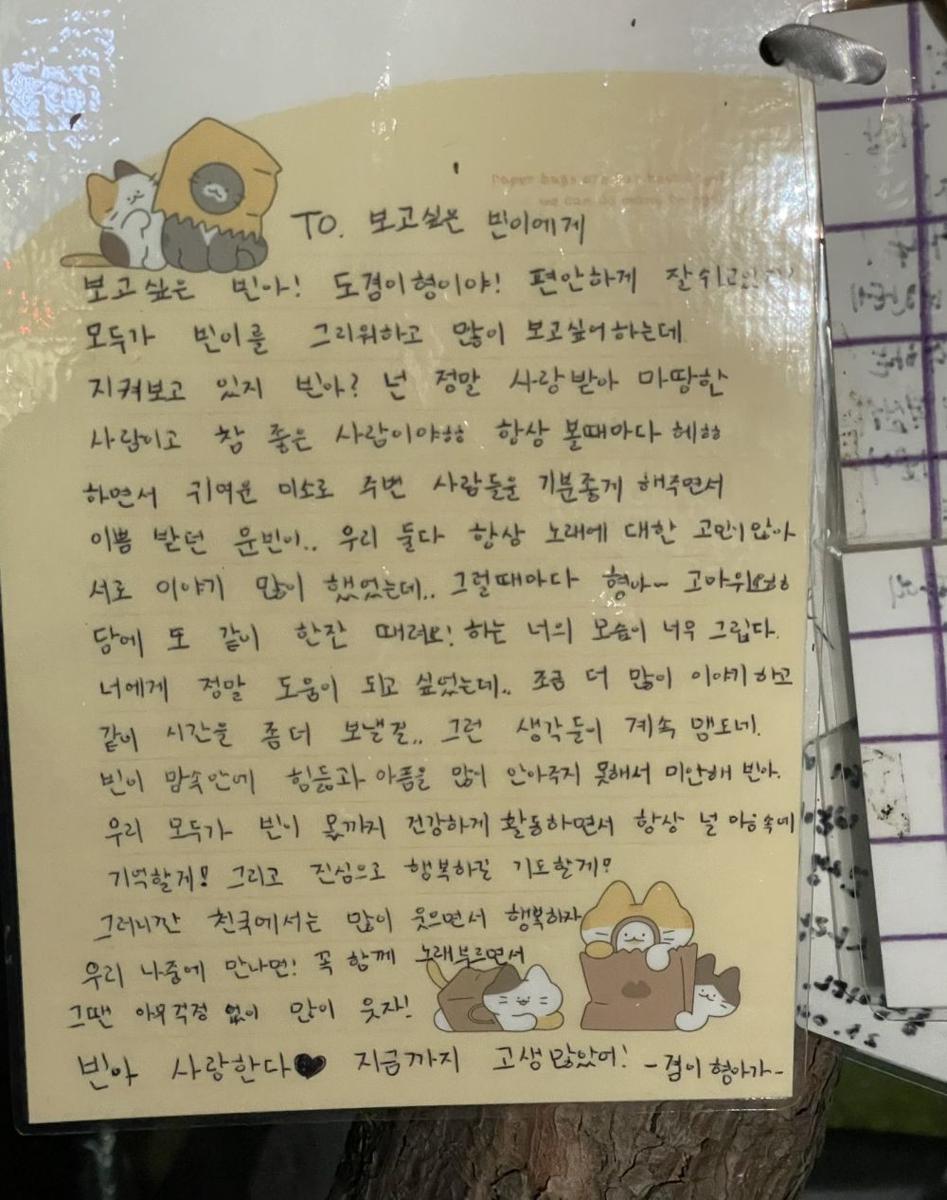 TO. 보고싶은 빈이에게
보고싶은 빈아! 도겸이형이야! 편안하게 잘쉬고
모두가 빈이를 그리워하고 많이 보고싶어하는데
지켜보고 있지 빈아? 넌 정말 사랑받아 마땅한
사람이고 참 좋은 사람이야ㅎㅎ 항상 볼때마다 헤ㅎㅎ
하면서 귀여운 미소로 주변 사람들을 기분좋게 해주면서
이쁨 받던 문빈이.. 우리 둘다 항상 노래에 대한 고민이 많아
서로 이야기 많이 했었는데.. 그럴때마다 형아~ 고마워요ㅎㅎ
담에 또 같이 한잔 때려요! 하는 너의 모습이 너무 그립다.
너에게 정말 도움이 되고 싶었는데.. 조금 더 많이 이야기하고
같이 시간을 좀더 보낼걸.. 그런 생각들이 계속 맴도네.
빈이 맘속안에 힘듦과 아픔을 많이 안아주지 못해서 미안해 빈아.
우리 모두가 빈이 몫까지 건강하게 활동하면서 항상 널 마음속에
기억할게! 그리고 진심으로 행복하길 기도할게!
그러니깐 천국에서는 많이 웃으면서 행복하자
우리 나중에 만나면! 꼭 함께 노래부르면서
그땐 아무걱정 없이 많이 웃자!
빈아 사랑한다♥ 지금까지 고생많았어! -겸이형아가-